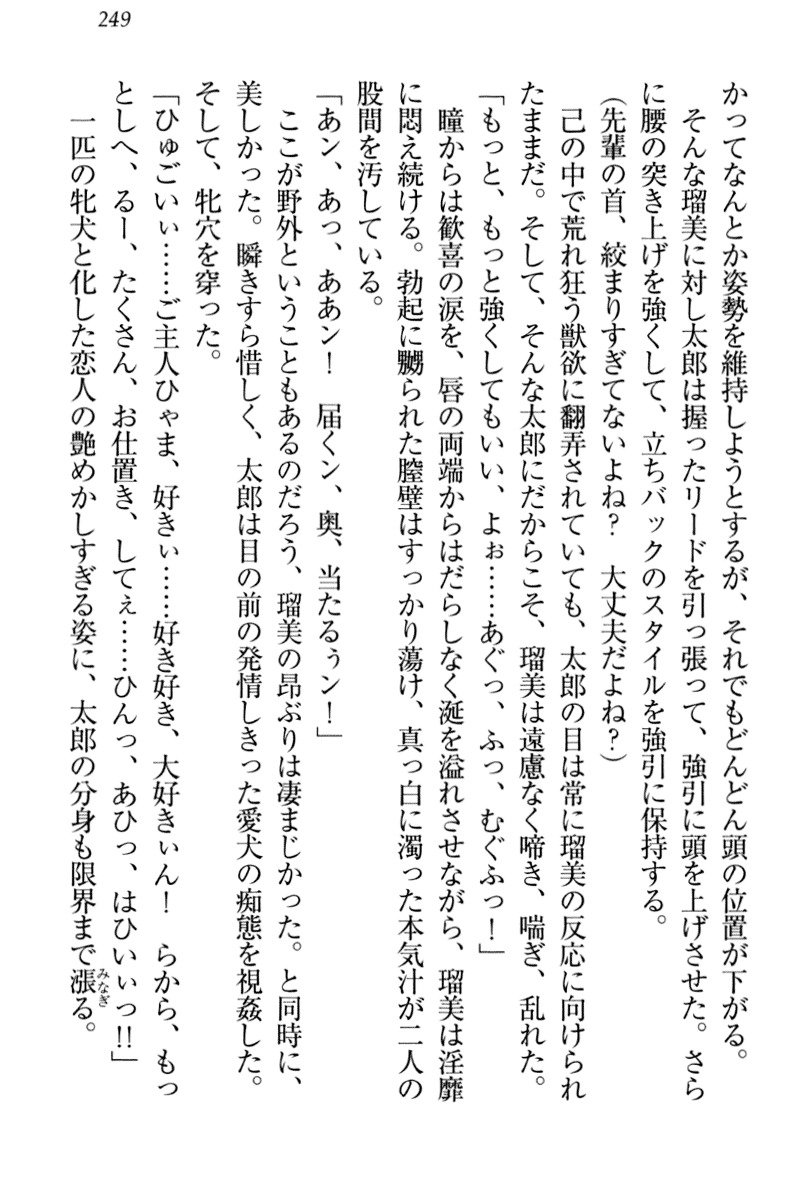 249
かってなんとか姿勢を維持しようとするが、それでもどんどん頭の位置が下がる。
　そんな瑠美に対し太郎は握ったリードを引っ張って、強引に頭を上げさせた。さら
に腰の突き上げを強くして、立ちバックのスタイルを強引に保持する。
（先輩の首、絞まりすぎてないよね？　大丈夫だよね？）
　己の中で荒れ狂う獣欲に翻弄されていても、太郎の目は常に瑠美の反応に向けられ
たままだ。そして、そんな太郎にだからこそ、瑠美は遠慮なく啼き、喘ぎ、乱れた。
「もっと、もっと強くしてもいい、よぉ……あぐっ、ふっ、むぐふっ！」
　瞳からは歓喜の涙を、唇の両端からはだらしなく涎を溢れさせながら、瑠美は淫靡
に悶え続ける。勃起に嬲られた膣壁はすっかり蕩け、真っ白に濁った本気汁が二人の
股間を汚している。
「あン、あっ、ああン！　届くン、奥、当たるぅン！」
　ここが野外ということもあるのだろう、瑠美の昂ぶりは凄まじかった。と同時に、
美しかった。瞬きすら惜しく、太郎は目の前の発情しきった愛犬の痴態を視姦した。
そして、牝穴を穿った。
「ひゅごいぃ……ご主人ひゃま、好きぃ……好き好き、大好きぃん！　らから、もっ
としへ、るー、たくさん、お仕置き、してぇ……ひんっ、あひっ、はひいぃっ!!」
　一匹の牝犬と化した恋人の艶めかしすぎる姿に、太郎の分身も限界まで漲みなぎる。